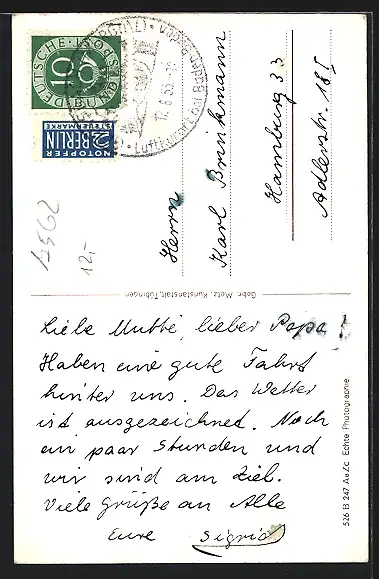 DEUTSCHE BUNDESPOST
10
NOTOPFER
2 BERLIN
STEUERMARKE
Luftkurort
bei Baden-Baden
12.-
Herrn
Karl Brinkmann
Hamburg 33
Adlerstr. 185
Gebr. Metz, Kunstanstalt, Tübingen
Liebe Mutti, lieber Papa!
Haben eine gute Fahrt
hinter uns. Das Wetter
ist ausgezeichnet. Noch
ein paar Stunden und
wir sind am Ziel.
Viele Grüße an Alle
Eure Sigrid
526 B 247 Au.Zc. Echte Photographie